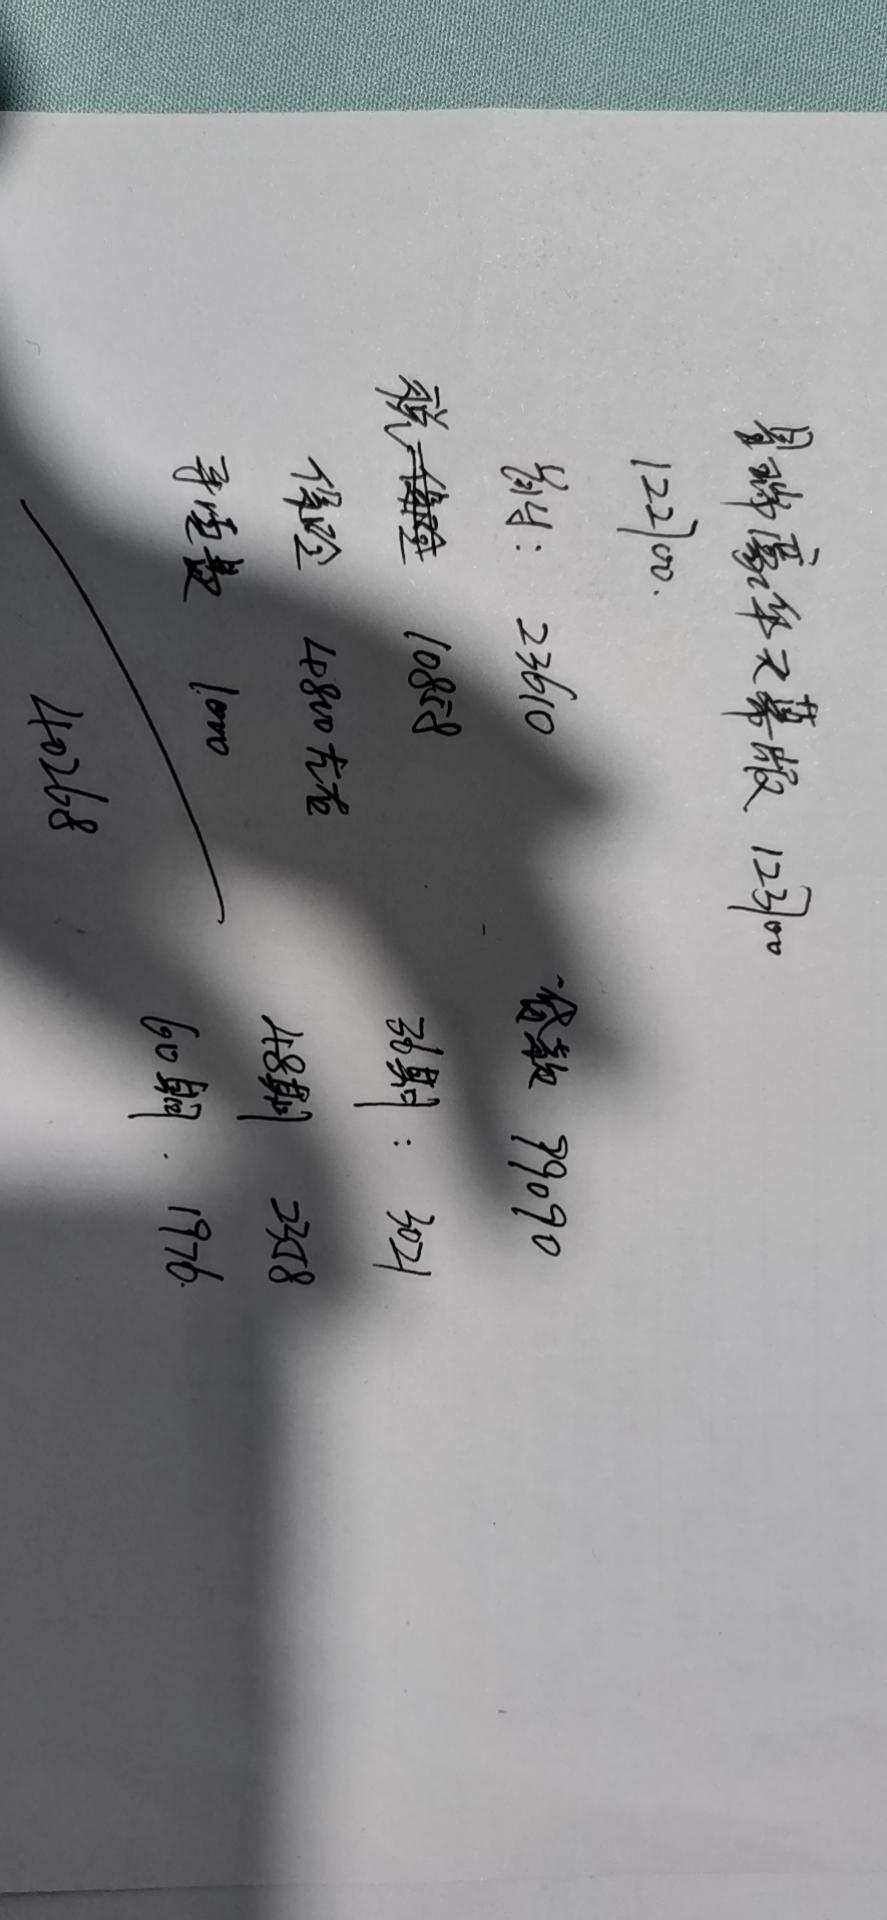 昊瑞豪华天幕版 123700
122700.
首付: 23610
税 保险 10858
保险 4800左右
手续费 1000
40268
贷款 99090
36期: 3021
48期 2358
60期. 1976.